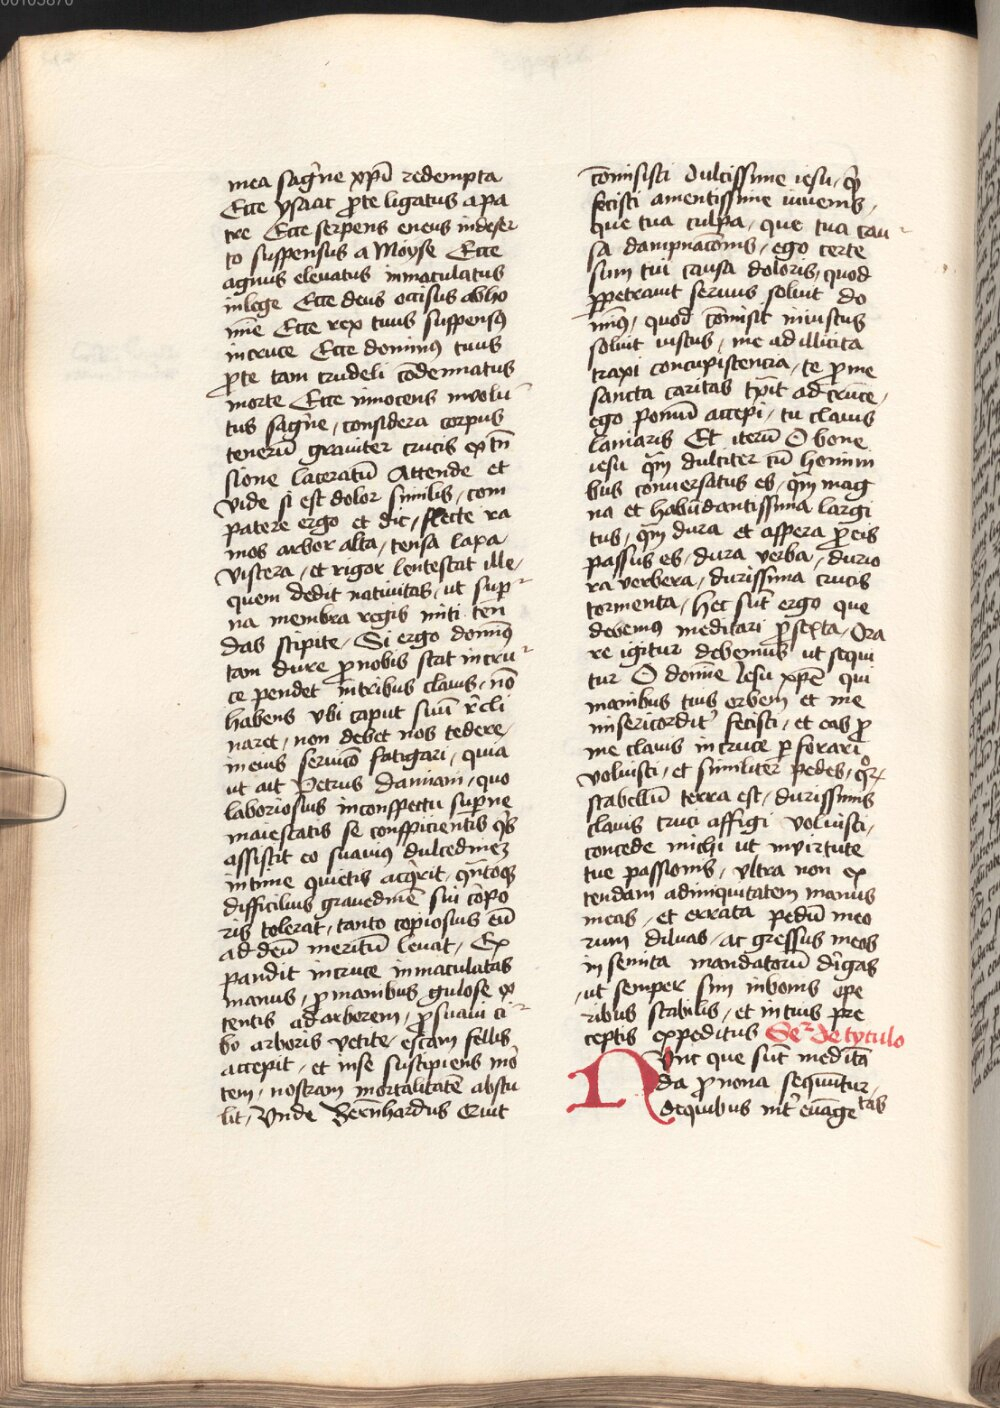 mea sagwne xpi redempta
Ecce ysaac pro te ligatus a pa
tre Ecce serpens eneus in deser
to suspensus a Moyse Ecce
agnus eleuatus inmaculatus
in lege Ecce deus occisus ab ho
mīe Ecce rex tuus suspensꝰ
in cruce Ecce dominꝰ tuus
ꝓ te tam crudeli cōdennatus
morte Ecce innocens inuolu
tus sagwne, considera corpus
tenerū grauiter crucis extēn
sione laceratū Attende et
vide si est dolor similis, com
patere ergo et dic, flecte ra
mos arbor alta, tensa laxa
viscera, et rigor lentescat ille,
quem dedit natiuitas, ut supr̄
na membra regis miti ten
das stipite, Si ergo domīnꝰ
tam dure ꝓ nobis stat in cru
ce pendet in tribus clauis, nō
habens vbi caput suū rͤcli
naret, non debet nos tedere,
in eius seruicō fatigari, quia
ut ait Petrus damiani, quo
laboriosius in conspectu supͥne
maiestatis se conspicientis qͥs
assistit eo suauiꝰ dulcedineꝫ
intime quietis acqͥrit, qͣntoqꝫ
difficilius grauedinē sui corꝑo
ris tolerat, tanto copiosius eū
ad deū meritū leuat, Ex
pandit in cruce inmaculatas
manus, ꝓ manibus gulose ex
tentis ad arborem, ꝓ suaui ci
bo arboris vetite, escam fellis
accepit, et in se suscipiens mōr
tem, nostram mortalitatē abstu
lit, Vnde Bernhardus Quit
cōmisisti dulcissime iesu, qͥd
fecisti amentissime iuuenis,
que tua culpa, que tua cau
sa dampnacōnis, ego certe
sum tui causa doloris, quod
ꝑpetrauit seruus soluit do
minꝰ, quod cōmisit iniustus
soluit iustus, me ad illicita
traxi concupistencia, te ꝓ me
sancta caritas tͣxit ad crucē,
ego pomū accepi, tu clauis
laniaris Et iterū O bone
iesu qͣm dulciter cū homini
bus conuersatus es, qͣm mag
na et habūdantissima largi
tus, qͣm dura et aspera ꝓ eis
passus es, dura verba, durio
ra verbera, durissima crucis
tormenta, hec sūt ergo que
debemꝰ meditari ꝓ sexta, Ora
re igitur debemus ut sequi
tur O domīe Jesu xpē qui
manibus tuis orbem et me
misericordit̉ fecisti, et eas ꝓ
me clauis in cruce ꝑforari
voluisti, et similiter pedes, qͦꝝ
scabellū terra est, durissimis
clauis cruci affigi voluisti,
concede michi ut in virtute
tue passionis, vltra non ex
tendam ad iniquitatem manus
meas, et errata pedū meo
rum diluas, ac gressus meos
in semita mandatorū diͥgas
, ut semper sim in bonis ope
ribus stabilis, et in tuis pre
ceptis expeditus Seͬ de tytulo
Nunc que sūt medita
da ꝓ nona sequūntur,
de quibus int̉ euāgetas